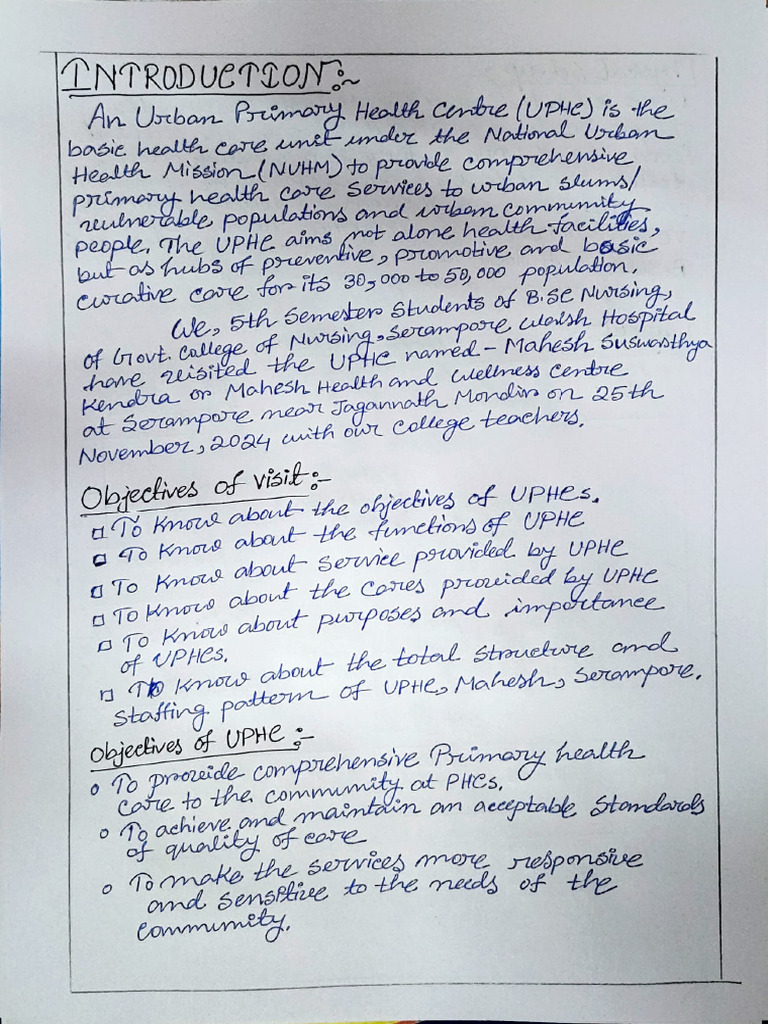 INTRODUCTION:~
An Urban Primary Health Centre (UPHC) is the
basic health care unit under the National Urban
Health Mission (NUHM) to provide comprehensive
primary health care services to urban slums/
vulnerable populations and urban community
people. The UPHC aims not alone health facilities,
but as hubs of preventive, promotive and basic
curative care for its 30,000 to 50,000 population.
We, 5th Semester Students of B.SC Nursing,
of Govt. College of Nursing, Serampore Walsh Hospital
have visited the UPHC named - Mahesh Suswasthya
Kendra or Mahesh Health and Wellness Centre
at Serampore near Jagannath Mondir on 25th
November, 2024 with our College teachers.
Objectives of visit:-
□ To Know about the objectives of UPHCs.
□ To Know about the functions of UPHC
□ To Know about Service provided by UPHC
□ To Know about the Cares provided by UPHC
□ To Know about purposes and importance
of UPHCs.
□ To Know about the total Structure and
Staffing pattern of UPHC, Mahesh, Serampore.
Objectives of UPHC:-
o To provide comprehensive Primary health
care to the community at PHCs.
o To achieve and maintain an acceptable Standards
of quality of care
o To make the services more responsive
and sensitive to the needs of the
Community.